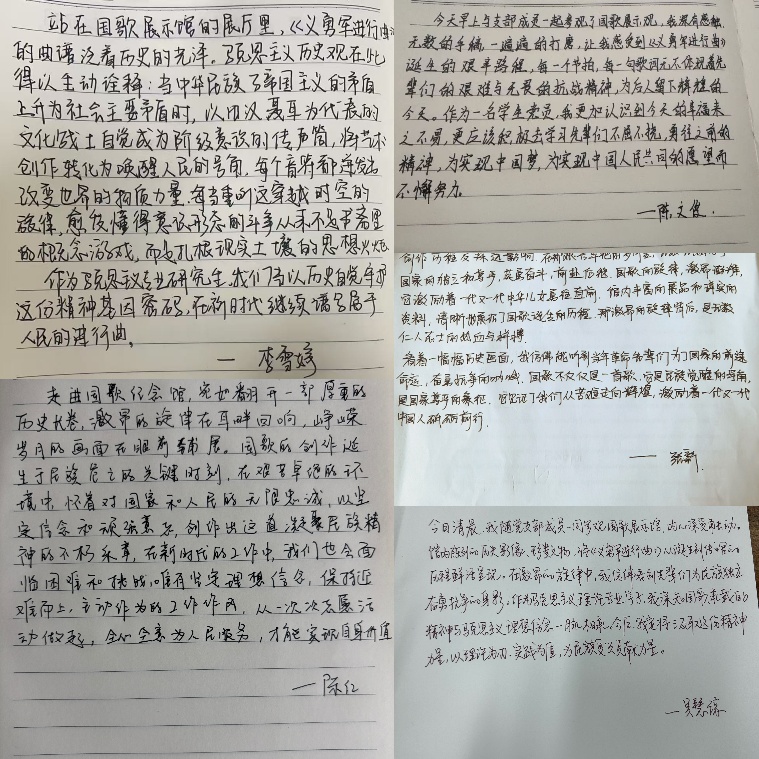 站在国歌展示馆的展厅里，《义勇军进行曲》
的曲谱泛着历史的光泽。马克思主义历史观在此
得以生动诠释：当中华民族与帝国主义的矛盾
上升为社会主要矛盾时，以田汉聂耳为代表的
文化战士自觉成为阶级意识的传声筒，将艺术
创作转化为唤醒人民的号角，每个音符都迸发出
改变世界的物质力量。每当重听这穿越时空的
旋律，愈发懂得意识形态的斗争从来不是书斋里
的概念游戏，而是扎根现实土壤的思想火炬。
作为马克思主义专业研究生，我们当以历史自觉
这份精神基因密码，在新时代继续谱写属于
人民的进行曲。
— 李雪婷
走进国歌纪念馆，宛如翻开一部厚重的
历史长卷，激昂的旋律在耳畔回响，峥嵘
岁月的画面在眼前铺展。国歌的创作诞
生于民族危亡的关键时刻，在艰苦卓绝的环
境中，怀着对国家和人民的无限忠诚，以坚
定信念和顽强意志，创作出这首凝聚民族精
神的不朽乐章。在新时代的工作中，我们也会面
临困难和挑战，唯有坚定理想信念，保持迎
难而上，主动作为的工作作风，从一次次志愿活
动做起，全心全意为人民服务，才能实现自身价值
— 陈红
今天早上与支部成员一起参观了国歌展示馆，我深有感触
无数的手稿，一遍遍的打磨，让我感受到《义勇军进行曲》
诞生的艰辛路程，每一个节拍，每一句歌词无不体现着先
辈们的艰难与无畏的抗战精神，为后人留下辉煌的
今天。作为一名学生党员，我更加认识到今天的幸福来
之不易，更应该积极去学习先辈们不屈不挠，勇往之前的
精神，为实现中国梦，为实现中国人民共同的愿望而
不懈努力。
— 陈文俊
创作历程及深远影响。在
国家的独立和尊严，英勇奋斗，前赴后继。国歌的旋律，激昂雄壮，
它激励着一代又一代中华儿女勇往直前。馆内丰富的展品和详实的
资料，清晰地展示了国歌诞生的历程。那激昂的旋律背后，是无数
仁人志士的热血与拼搏
看着一幅幅历史画面，我仿佛能听到当年革命先辈们为了国家的前途
命运，奋勇抗争的呐喊。国歌不仅仅是一首歌，它是民族觉醒的号角，
是国家尊严的象征。它见证了我们从苦难走向辉煌，激励着一代又一代
中国人砥砺前行。
— 张新
今日清晨，我随党支部成员一同参观国歌展示馆，内心深受触动。
馆内陈列的历史影像、珍贵文物，将《义勇军进行曲》从诞生到传唱的
历程鲜活呈现。在激昂的旋律中，我仿佛看到先辈们为民族独立
奋勇抗争的身影。作为马克思主义理论专业学子，我深知国歌承载的
精神与马克思主义理想信念一脉相承。今后，我定将汲取这份精神
力量，以理论为刃，实践为值，为民族复兴贡献力量。
— 吴慧